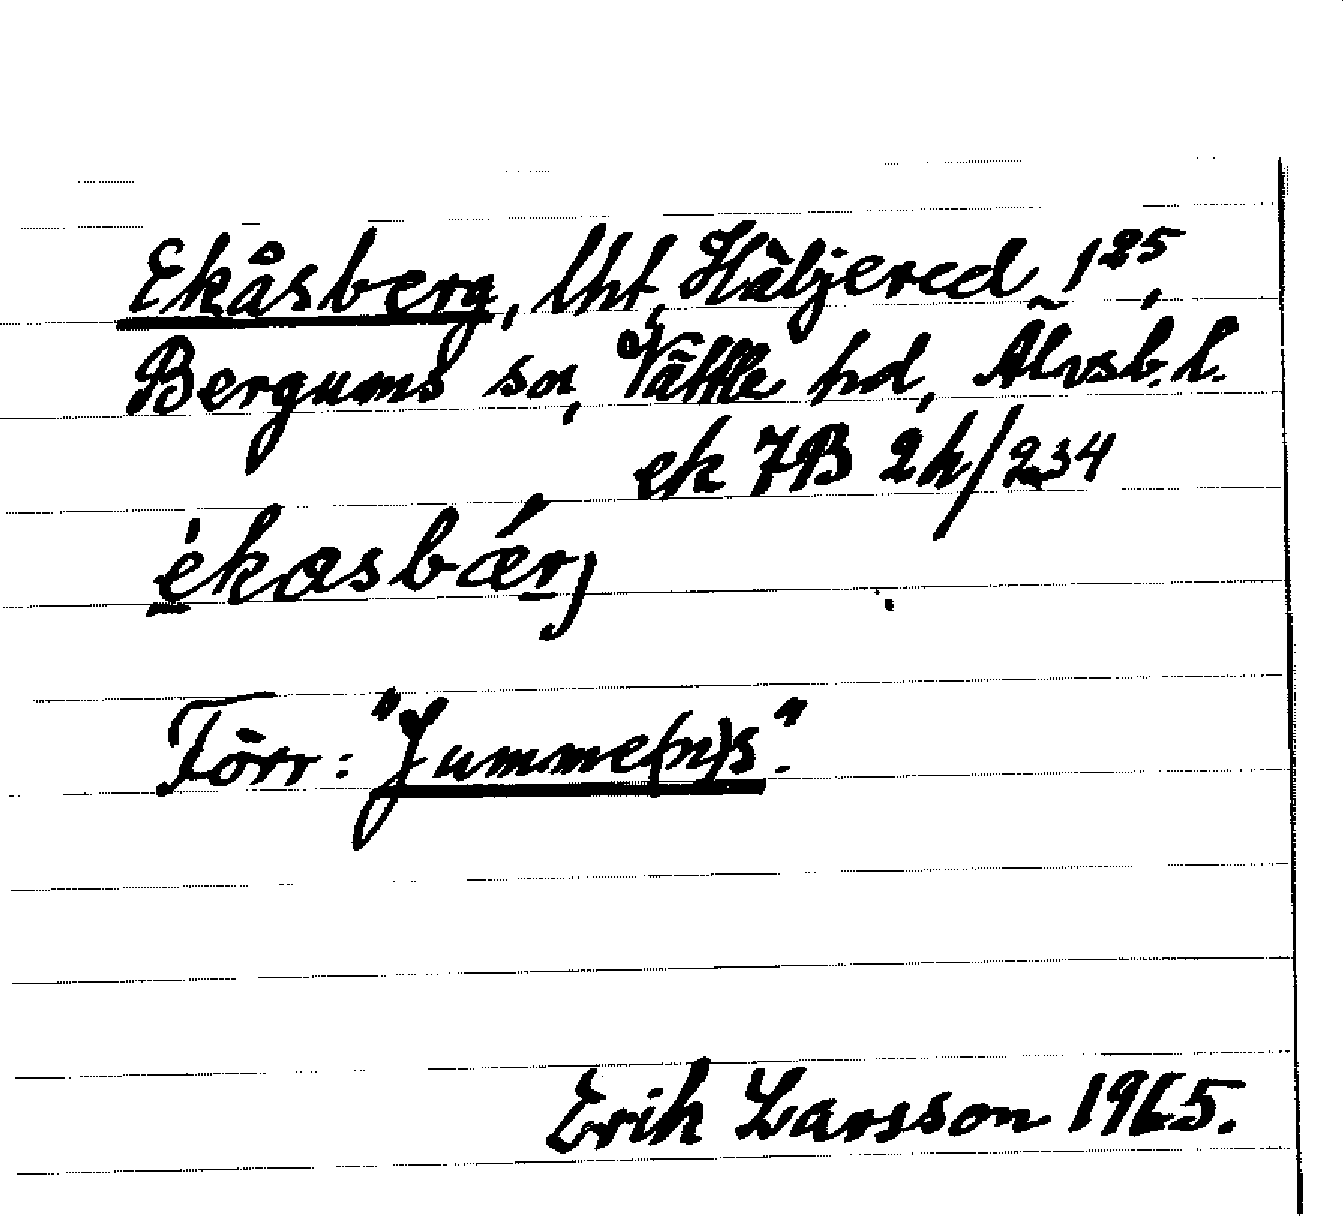 Ekåsberg, lht, Häljered 1²⁵,
Bergums sn, Vättle hd, Älvsb. l.
ek 7B 2h/234
èkasbǽrj
Förr: "Jumme(n)s".
Erik Larsson 1965.